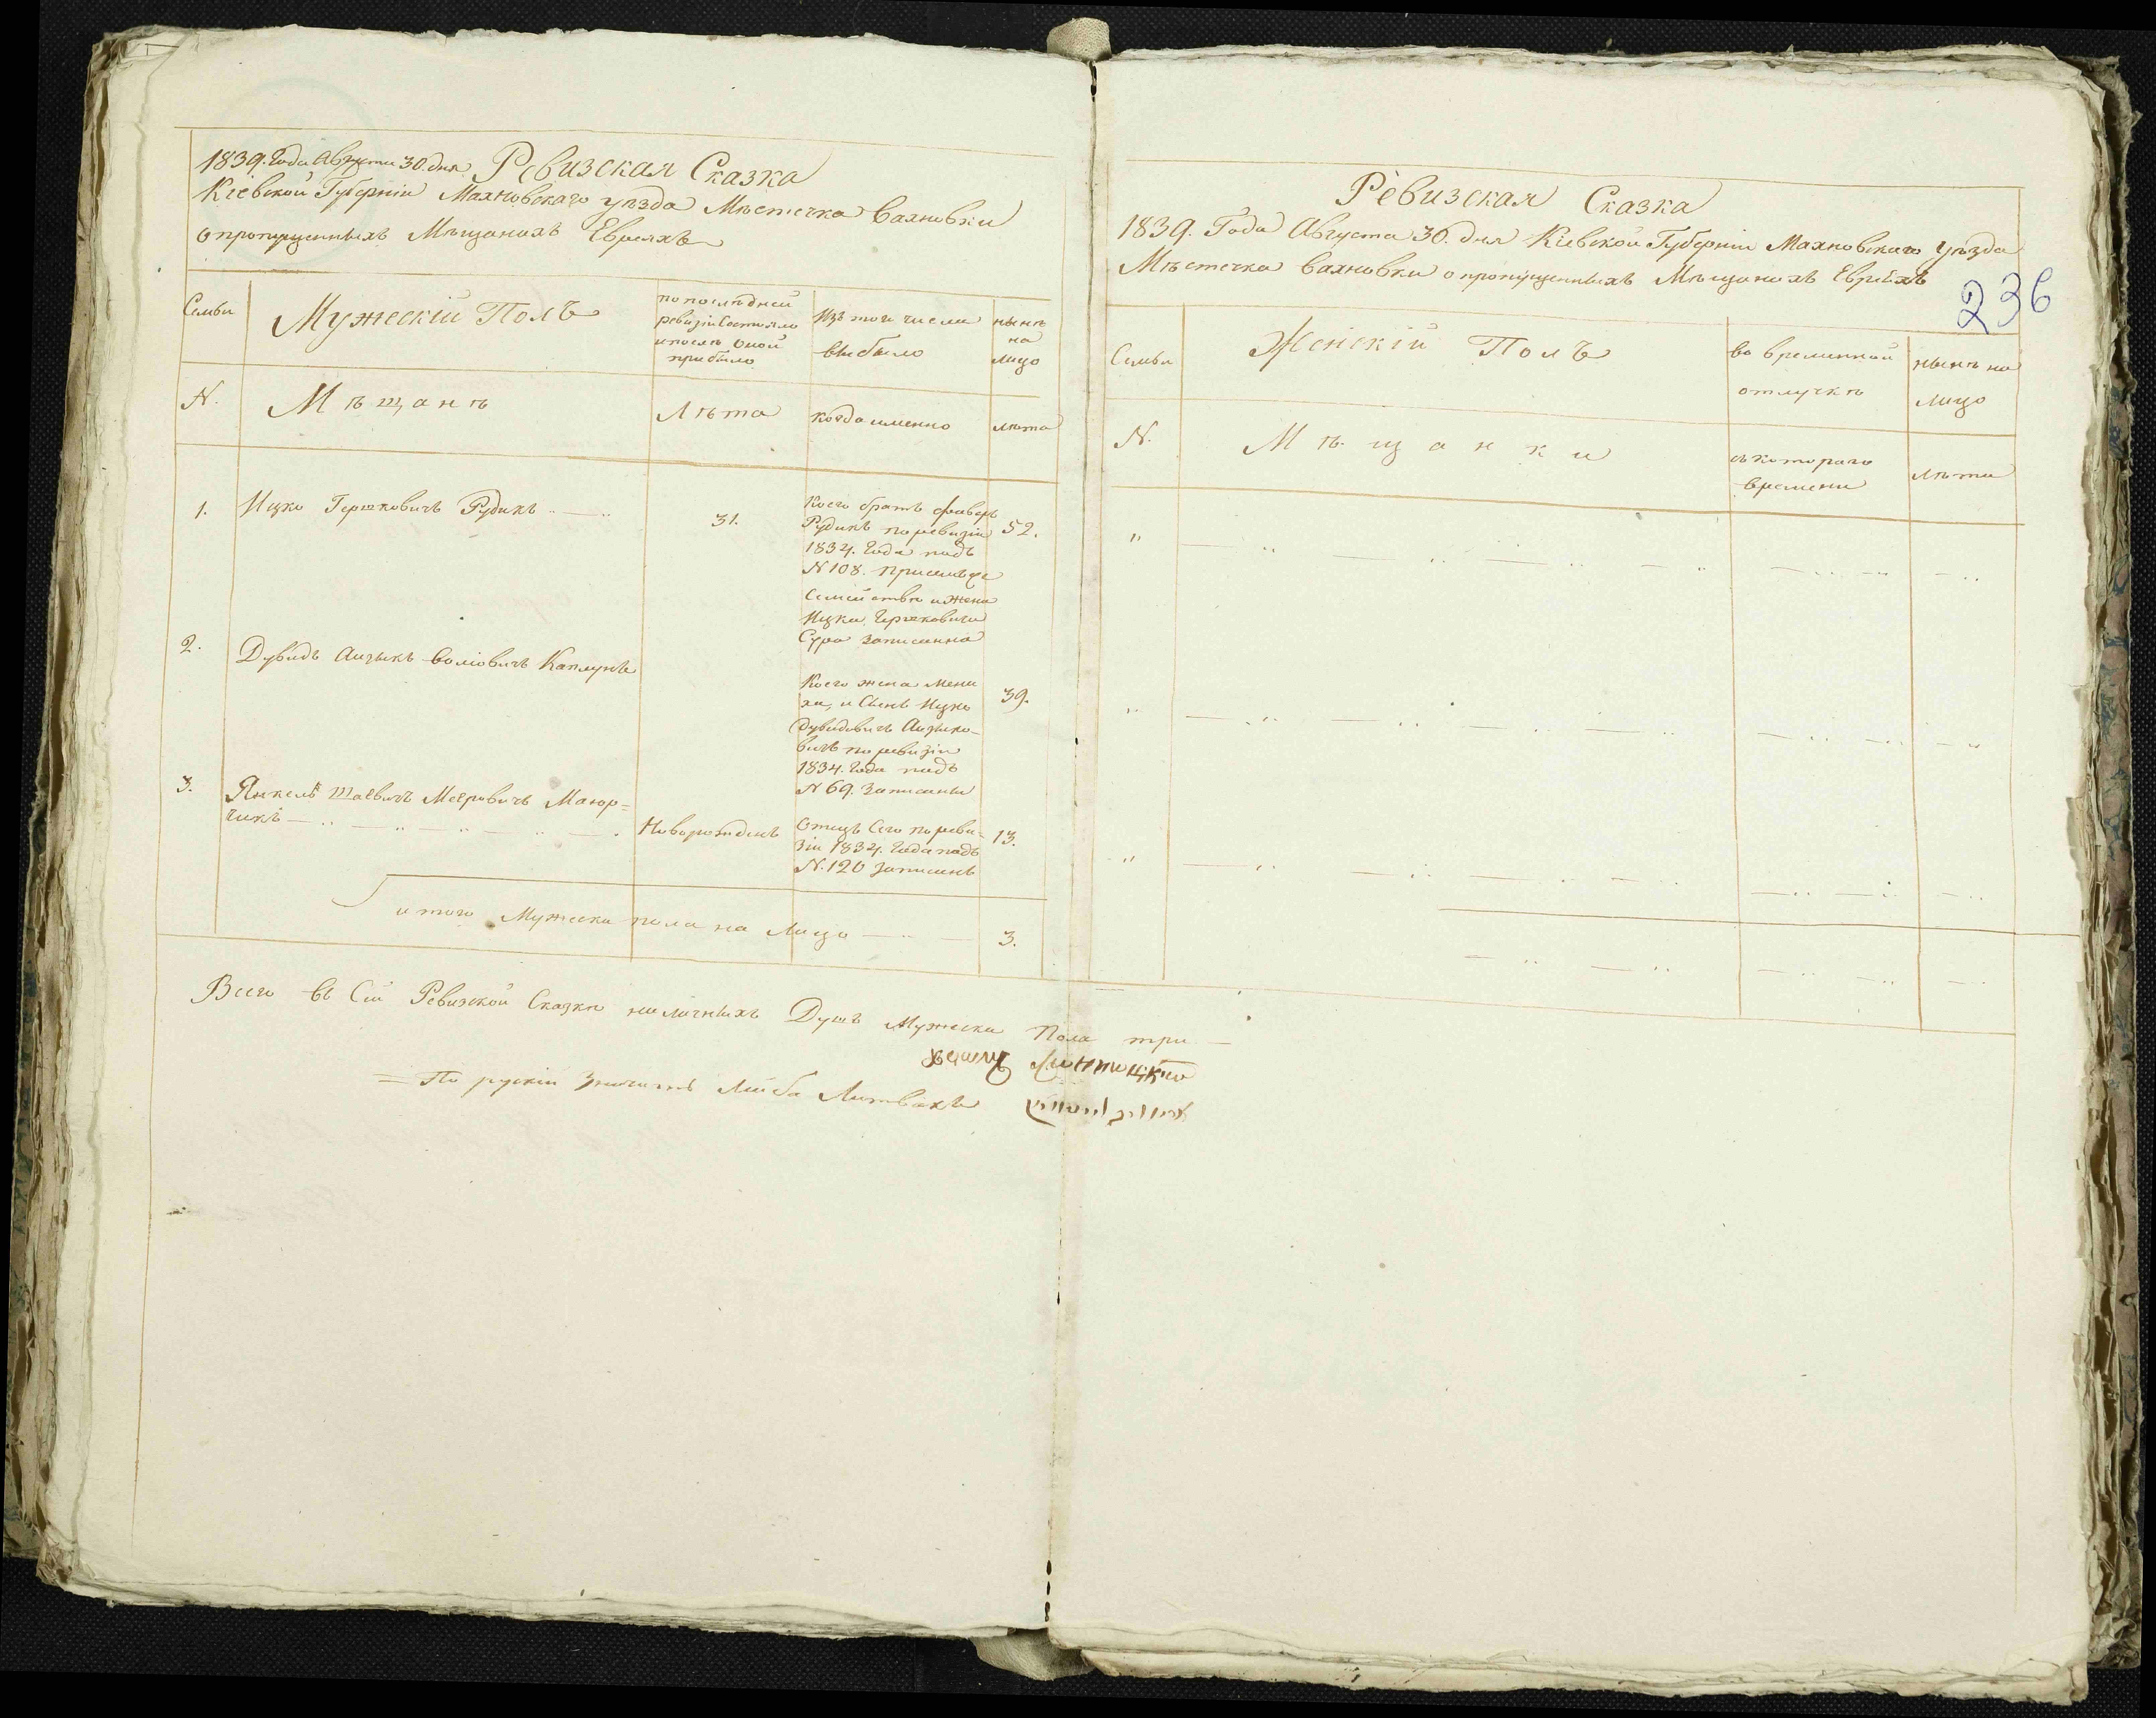 1839. Года Августа 30. дня Ревизская Сказка
Кіевской Губерніи Махновскаго уѣзда Мѣстечка Вахновки
о пропущенныхъ Мѣщанахъ Евреяхъ
Семьи
Мужескій Полъ
по послѣдней
ревизіи Состояло
и послѣ оной
прибыло
Изъ того числа
выбыло
нынѣ
на
лицо
N.
Мѣщанѣ
Лѣта
когда именно
лѣта
1.
Ицко Гершковичъ Рудикъ
31.
Коего братъ
Рудикъ по ревизіи
1834. Года подъ
N 108.
Семействѣ и жена
Ицка Гершковича
Сура записанна
52.
2.
Дувидъ Аизыкъ Волковичъ Каплунъ
Коего жена Мени
ха, и Сынъ Ицко
Дувидовичъ Аизыко-
вичъ по ревизіи
1834. Года подъ
N 69. Записаны
39.
3.
Янкель Шаевичъ Меeровичъ Маюр=
чикъ
Новорожденъ
Отецъ Его по реви-
зіи 1834. Года подъ
N. 120 записанъ
13.
итого Мужеска пола на лицо
3.
Всего въ Сей Ревизской Сказкѣ наличныхъ Душъ Мужеска Пола три
= По рускіи Значитъ Лейба Литвакъ
Ревизская Сказка
1839. Года Августа 30. дня Кіевской Губерніи Махновскаго Уѣзда
Мѣстечка Вахновки о пропущенныхъ Мѣщанахъ Евреяхъ
236
Семьи
Женскій Полъ
во временной
отлучкѣ
нынѣ на
лицо
N.
Мѣщанки
съ котораго
времени
Лѣта